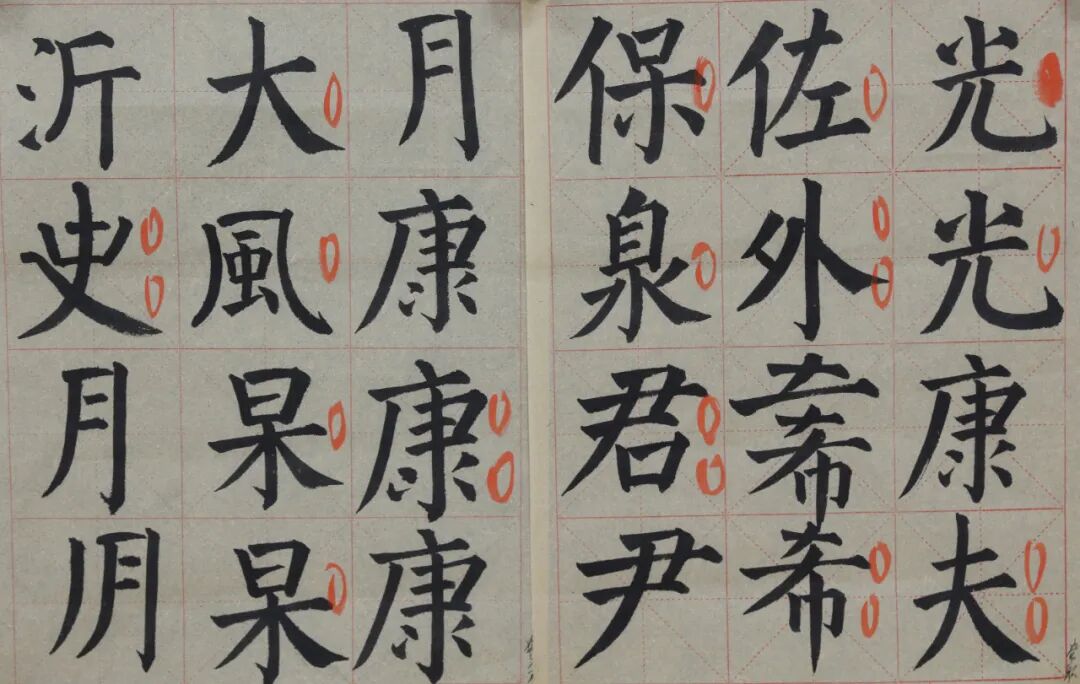 光光康夫
佐外希希
保泉君尹
月康康康
大風杲杲
沂史月